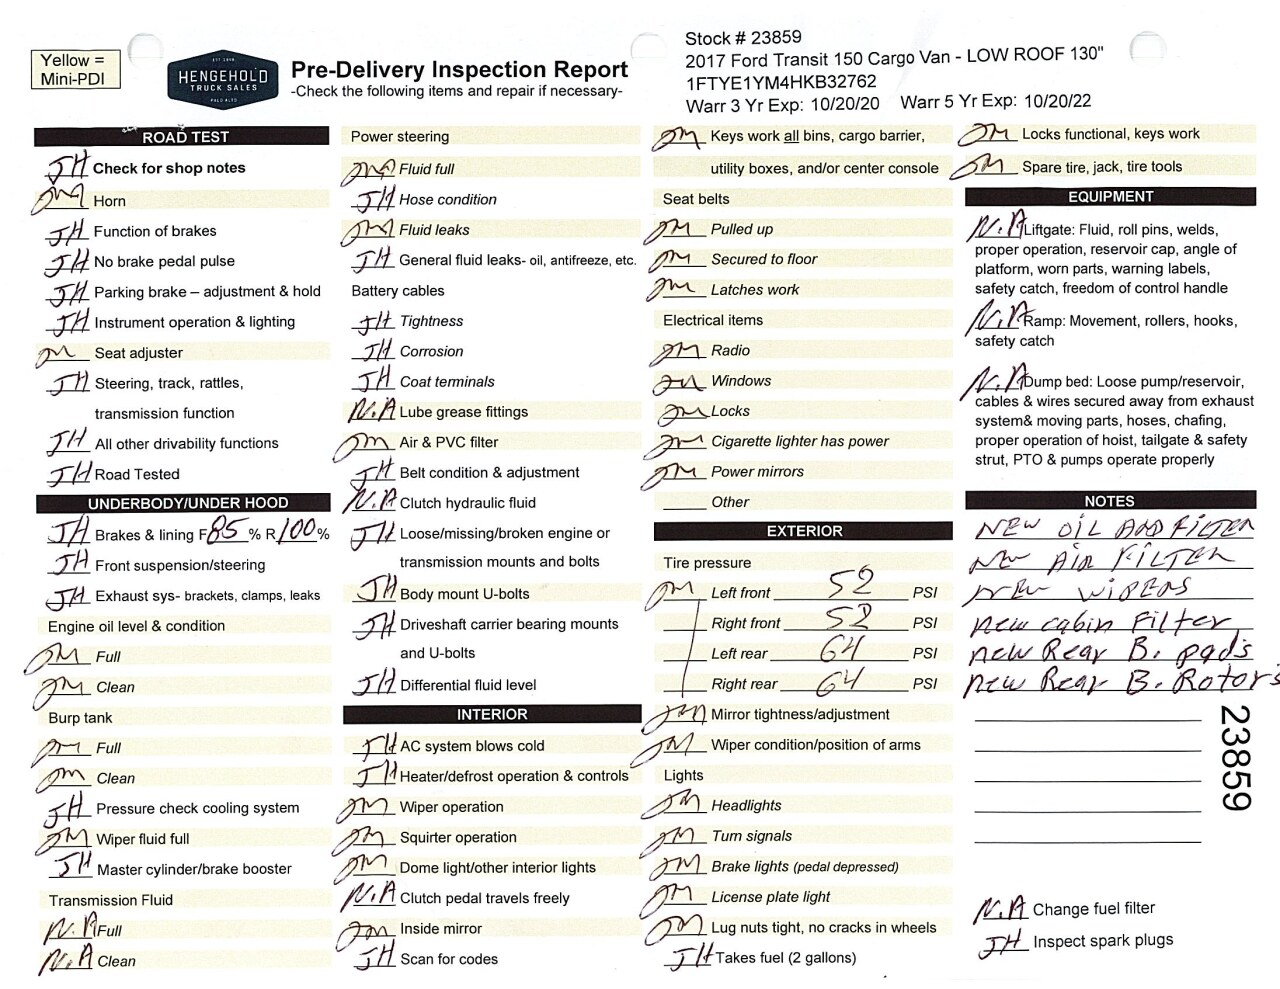 Yellow =
Mini-PDI
EST 1998
HENGEHOLD
TRUCK SALES
PALO ALTO
Pre-Delivery Inspection Report
-Check the following items and repair if necessary-
Stock # 23859
2017 Ford Transit 150 Cargo Van - LOW ROOF 130"
1FTYE1YM4HKB32762
Warr 3 Yr Exp: 10/20/20 Warr 5 Yr Exp: 10/20/22
ROAD TEST
JH Check for shop notes
JM Horn
JH Function of brakes
JH No brake pedal pulse
JH Parking brake – adjustment & hold
JH Instrument operation & lighting
JM Seat adjuster
JH Steering, track, rattles,
transmission function
JH All other drivability functions
JH Road Tested
UNDERBODY/UNDER HOOD
JH Brakes & lining F 85 % R 100 %
JH Front suspension/steering
JH Exhaust sys- brackets, clamps, leaks
Engine oil level & condition
JM Full
JM Clean
Burp tank
JM Full
JM Clean
JH Pressure check cooling system
JM Wiper fluid full
JH Master cylinder/brake booster
Transmission Fluid
N.A Full
N.A Clean
Power steering
JM Fluid full
JH Hose condition
JM Fluid leaks
JH General fluid leaks- oil, antifreeze, etc.
Battery cables
JH Tightness
JH Corrosion
JH Coat terminals
N.A Lube grease fittings
JM Air & PVC filter
JH Belt condition & adjustment
N.A Clutch hydraulic fluid
JH Loose/missing/broken engine or
transmission mounts and bolts
JH Body mount U-bolts
JH Driveshaft carrier bearing mounts
and U-bolts
JH Differential fluid level
INTERIOR
JH AC system blows cold
JH Heater/defrost operation & controls
JM Wiper operation
JM Squirter operation
JM Dome light/other interior lights
N.A Clutch pedal travels freely
JM Inside mirror
JH Scan for codes
JM Keys work all bins, cargo barrier,
utility boxes, and/or center console
Seat belts
JM Pulled up
JM Secured to floor
JM Latches work
Electrical items
JM Radio
JM Windows
JM Locks
JM Cigarette lighter has power
JM Power mirrors
Other
EXTERIOR
Tire pressure
JM Left front 52 PSI
Right front 52 PSI
Left rear 64 PSI
Right rear 64 PSI
JM Mirror tightness/adjustment
JM Wiper condition/position of arms
Lights
JM Headlights
JM Turn signals
JM Brake lights (pedal depressed)
JM License plate light
JM Lug nuts tight, no cracks in wheels
JH Takes fuel (2 gallons)
JM Locks functional, keys work
JM Spare tire, jack, tire tools
EQUIPMENT
N.A Liftgate: Fluid, roll pins, welds,
proper operation, reservoir cap, angle of
platform, worn parts, warning labels,
safety catch, freedom of control handle
N.A Ramp: Movement, rollers, hooks,
safety catch
N.A Dump bed: Loose pump/reservoir,
cables & wires secured away from exhaust
system& moving parts, hoses, chafing,
proper operation of hoist, tailgate & safety
strut, PTO & pumps operate properly
NOTES
NEW OIL AND FILTER
NEW AIR FILTER
NEW WIPERS
new cabin Filter
new Rear B. pads
new Rear B. Rotors
23859
N.A Change fuel filter
JH Inspect spark plugs